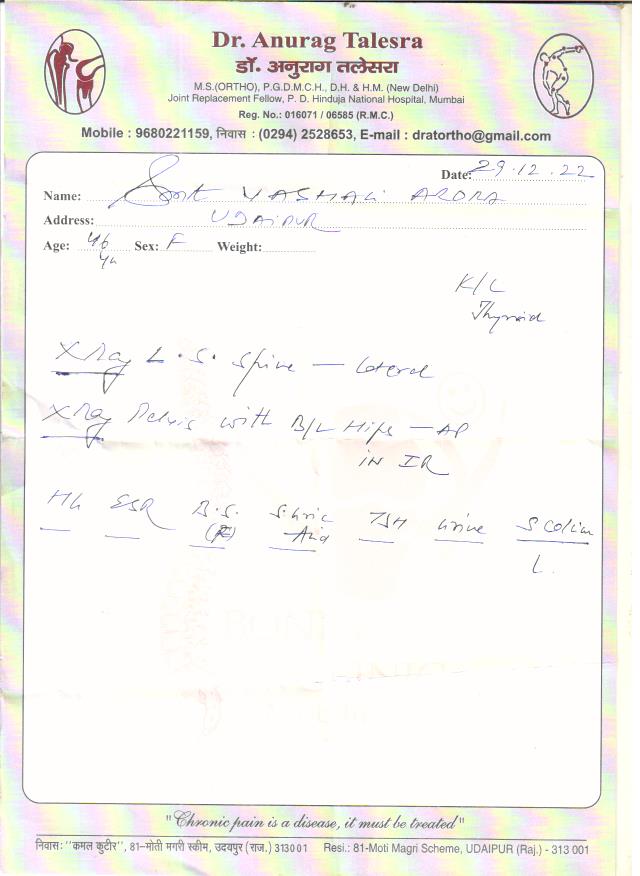 Dr. Anurag Talesra
डॉ. अनुराग तलेसरा
M.S.(ORTHO), P.G.D.M.C.H., D.H. & H.M. (New Delhi)
Joint Replacement Fellow, P. D. Hinduja National Hospital, Mumbai
Reg. No.: 016071 / 06585 (R.M.C.)
Mobile : 9680221159, निवास : (0294) 2528653, E-mail : dratortho@gmail.com
Date: 29.12.22
Name: Smt VASHALI ARORA
Address: UDAIPUR
Age: 46 Sex: F Weight:
K/C
Thyroid
X Ray L.S. Spine — Lateral
X Ray Pelvis with B/L Hips — AP
IN IR
Hb ESR B.S. S. Uric TSH Urine S
(F) Acid
"Chronic pain is a disease, it must be treated"
निवास: "कमल कुटीर", 81-मोती मगरी स्कीम, उदयपुर (राज.) 313001 Resi.: 81-Moti Magri Scheme, UDAIPUR (Raj.) - 313 001